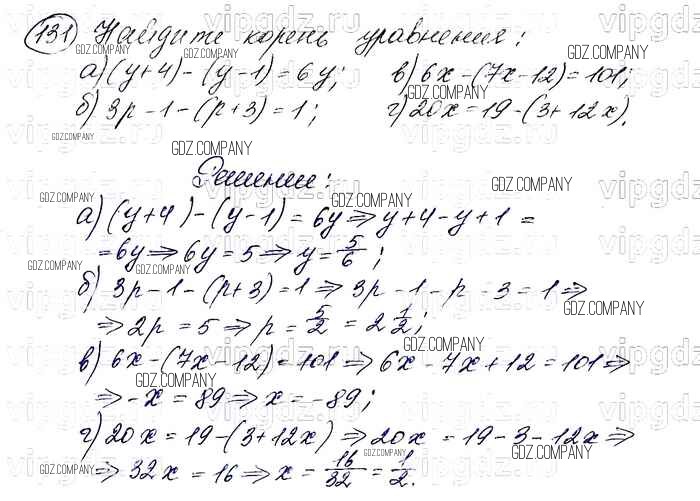 131 Найдите корень уравнения:
а) (y+4)-(y-1)=6y; в) 6x-(7x-12)=101;
б) 3p-1-(p+3)=1; г) 20x=19-(3+12x).
Решение:
а) (y+4)-(y-1)=6y⇒y+4-y+1=
=6y⇒6y=5⇒y=5/6;
б) 3p-1-(p+3)=1⇒3p-1-p-3=1⇒
⇒2p=5⇒p=5/2=2 1/2;
в) 6x-(7x-12)=101⇒6x-7x+12=101⇒
⇒-x=89⇒x=-89;
г) 20x=19-(3+12x)⇒20x=19-3-12x⇒
⇒32x=16⇒x=16/32=1/2.
GDZ.COMPANY
vipgdz.ru